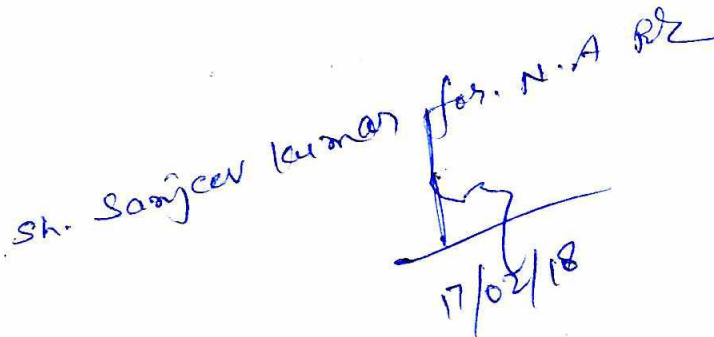 Sh. Sanjeev Kumar for. N.A
17/02/18